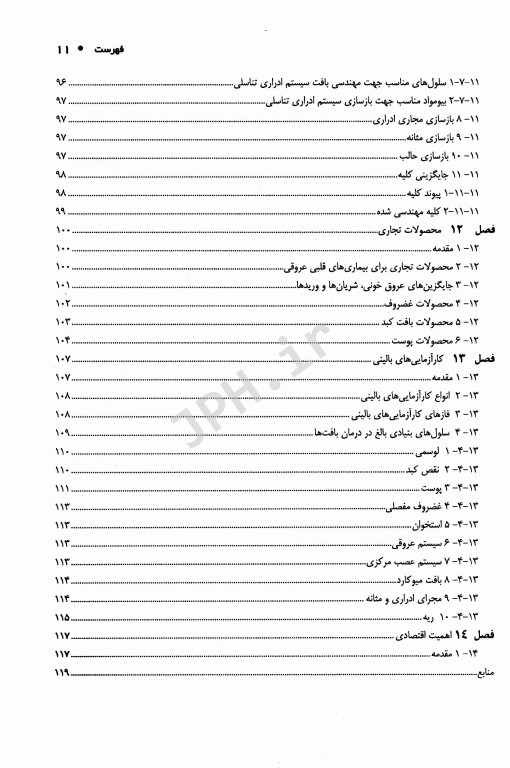 فهرست • ۱۱
۱۱-۷-۱ سلول‌های مناسب جهت مهندسی بافت سیستم ادراری تناسلی ۹۶
۱۱-۷-۲ بیومواد مناسب جهت بازسازی سیستم ادراری تناسلی ۹۷
۱۱- ۸ بازسازی مجاری ادراری ۹۷
۱۱- ۹ بازسازی مثانه ۹۷
۱۱- ۱۰ بازسازی حالب ۹۷
۱۱- ۱۱ جایگزینی کلیه ۹۸
۱۱-۱۱-۱ پیوند کلیه ۹۸
۱۱-۱۱-۲ کلیه مهندسی شده ۹۹
فصل ۱۲ محصولات تجاری ۱۰۰
۱۲- ۱ مقدمه ۱۰۰
۱۲- ۲ محصولات تجاری برای بیماری‌های قلبی عروقی ۱۰۰
۱۲- ۳ جایگزین‌های عروق خونی، شریان‌ها و وریدها ۱۰۱
۱۲- ۴ محصولات غضروف ۱۰۲
۱۲- ۵ محصولات بافت کبد ۱۰۳
۱۲- ۶ محصولات پوست ۱۰۴
فصل ۱۳ کارآزمایی‌های بالینی ۱۰۷
۱۳- ۱ مقدمه ۱۰۷
۱۳- ۲ انواع کارآزمایی‌های بالینی ۱۰۸
۱۳- ۳ فازهای کارآزمایی‌های بالینی ۱۰۸
۱۳- ۴ سلول‌های بنیادی بالغ در درمان بافت‌ها ۱۰۹
۱۳-۴- ۱ لوسمی ۱۱۰
۱۳-۴- ۲ نقص کبد ۱۱۰
۱۳-۴- ۳ پوست ۱۱۱
۱۳-۴- ۴ غضروف مفصلی ۱۱۳
۱۳-۴- ۵ استخوان ۱۱۳
۱۳-۴- ۶ سیستم عروقی ۱۱۳
۱۳-۴- ۷ سیستم عصب مرکزی ۱۱۳
۱۳-۴- ۸ بافت میوکارد ۱۱۴
۱۳-۴- ۹ مجرای ادراری و مثانه ۱۱۴
۱۳-۴- ۱۰ ریه ۱۱۵
فصل ۱۴ اهمیت اقتصادی ۱۱۷
۱۴- ۱ مقدمه ۱۱۷
منابع ۱۱۹
JPH.ir